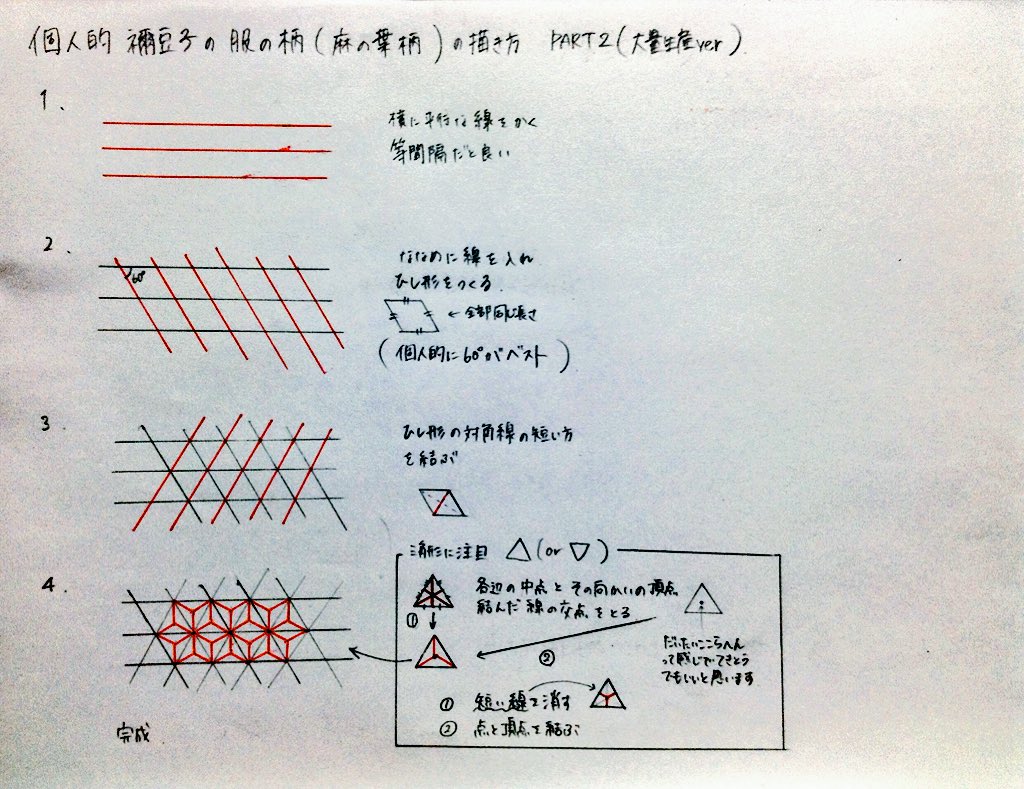 個人的 禰豆子の服の柄(麻の葉柄)の描き方 PART2(大量生産ver)
1.
横に平行な線をかく
等間隔だと良い
2.
60°
ななめに線を入れ
ひし形をつくる.
←全部同じ長さ
(個人的に60°がベスト)
3.
ひし形の対角線の短い方
を結ぶ
4.
完成
三角形に注目 △(or ▽)
各辺の中点とその向かいの頂点
結んだ線の交点をとる
①
②
だいたいここらへん
って感じでてきとう
でもいいと思います
① 短い線を消す
② 点と頂点を結ぶ